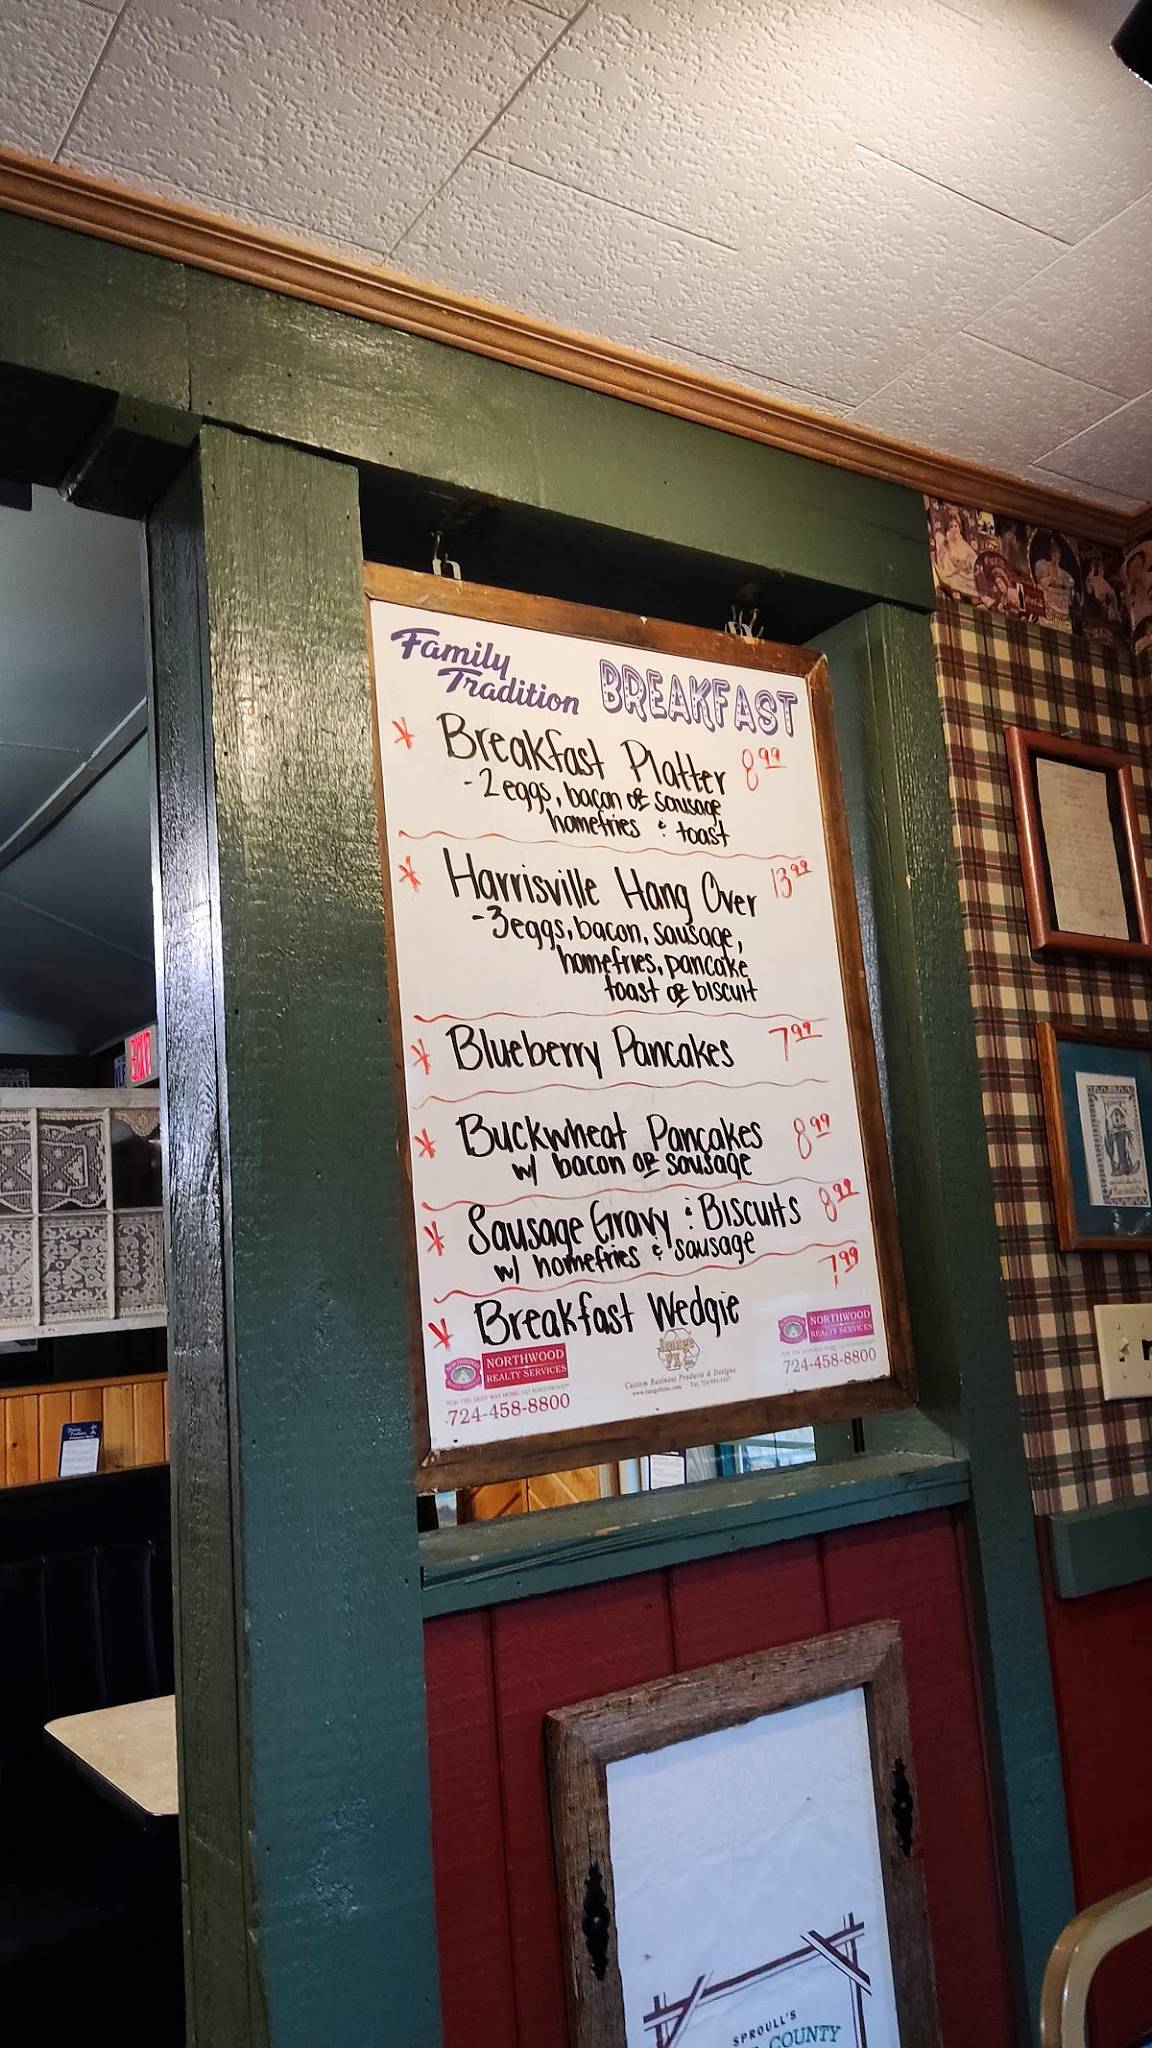 Family
Tradition
BREAKFAST
* Breakfast Platter 8.99
- 2 eggs, bacon or sausage
homefries & toast
* Harrisville Hang Over 13.99
- 3 eggs, bacon, sausage,
homefries, pancake
toast or biscuit
* Blueberry Pancakes 7.99
* Buckwheat Pancakes 8.99
w/ bacon or sausage
* Sausage Gravy & Biscuits 8.99
w/ homefries & sausage
* Breakfast Wedgie 7.99
NORTHWOOD
REALTY SERVICES
724-458-8800
Custom Business Products & Designs
NORTHWOOD
REALTY SERVICES
724-458-8800
EXIT
SPROULL'S
COUNTY